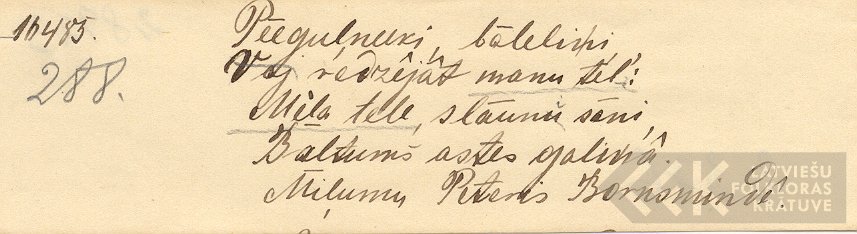 16485.
Pēeguļneeki, bāleliņi,
288.
Vaj redzējāt manu teļ':
Mēla tele, slāunu sāni,
Baltums astes galiņā.
Pēteris Bornsminde.
LATVIEŠU
FOLKLORAS
KRĀTUVE